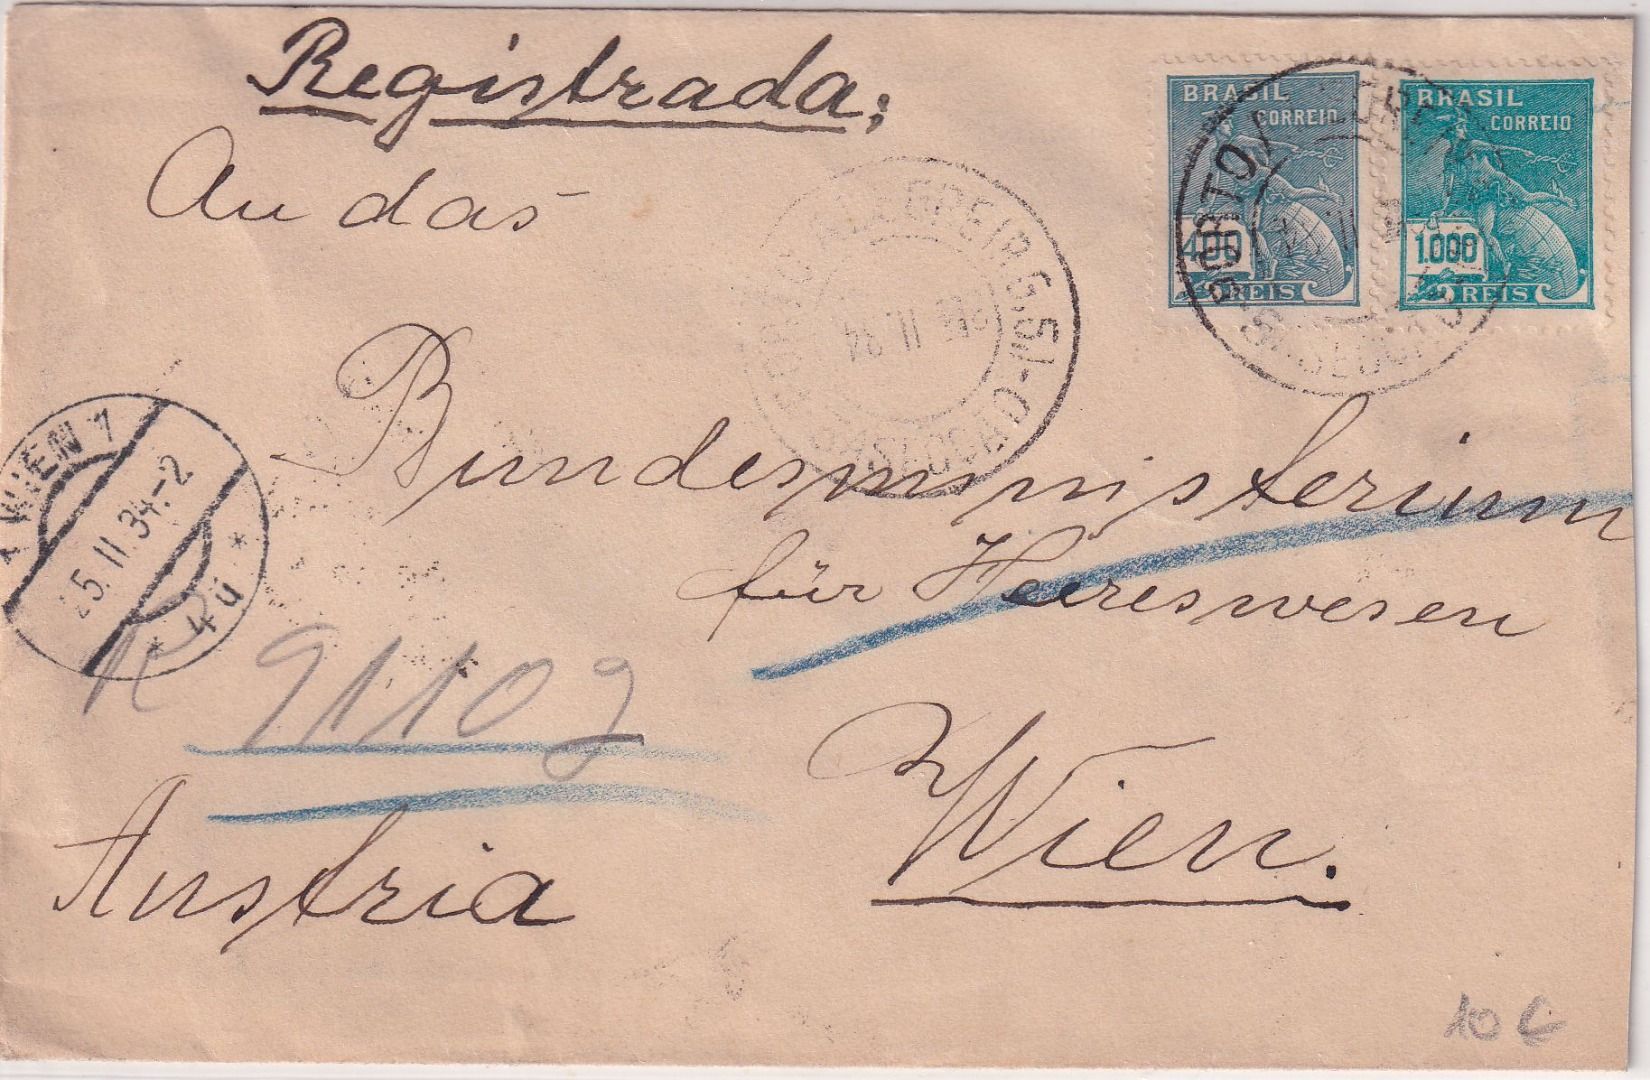 Registrada;
An das
Bundesministerium
für Heereswesen
Wien.
Austria
R 91109
BRASIL
CORREIO
400
REIS
BRASIL
CORREIO
1.000
REIS
PORTO
PORTO ALEGRE
II 34
WIEN 1
25.II.34.-2
* 4ü *
10 €